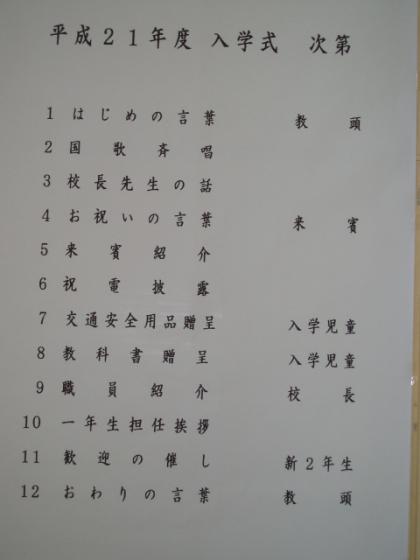 平成21年度 入学式 次第
1 はじめの言葉 教頭
2 国歌斉唱
3 校長先生の話
4 お祝いの言葉 来賓
5 来賓紹介
6 祝電披露
7 交通安全用品贈呈 入学児童
8 教科書贈呈 入学児童
9 職員紹介 校長
10 一年生担任挨拶
11 歓迎の催し 新2年生
12 おわりの言葉 教頭